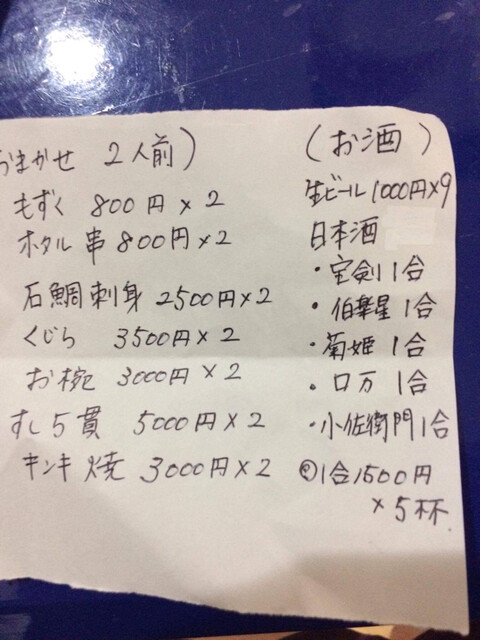 おまかせ 2人前)
もずく 800円×2
ホタル串800円×2
石鯛刺身 2500円×2
くじら 3500円×2
お椀 3000円×2
すし5貫 5000円×2
キンキ焼 3000円×2
(お酒)
生ビール1000円×9
日本酒
・宝剣1合
・伯楽星1合
・菊姫1合
・口万1合
・小佐衛門1合
1合1500円
×5杯